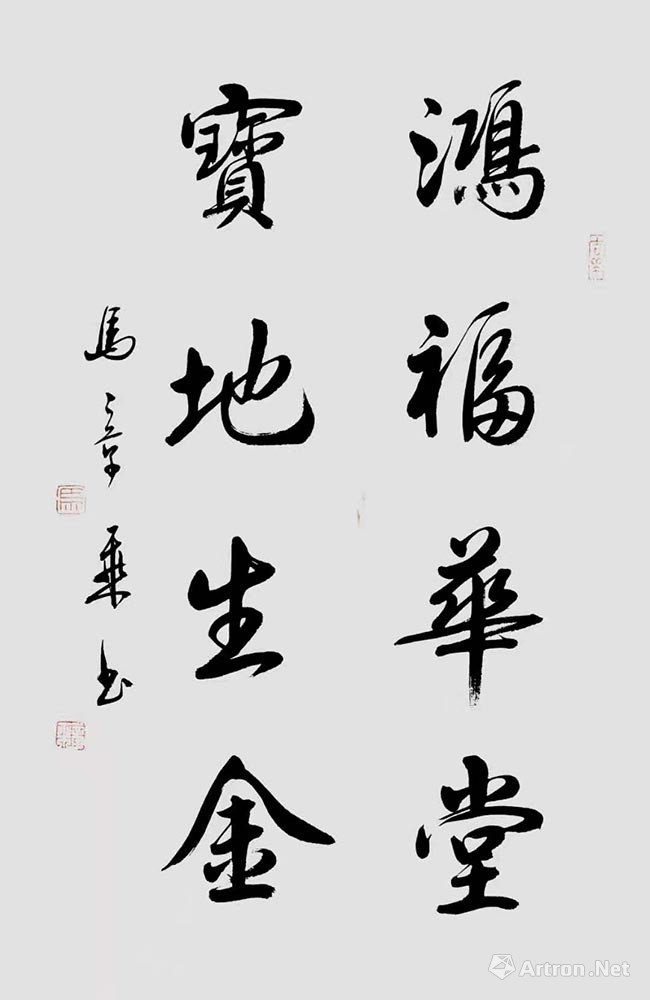 鴻福華堂
寶地生金
馬章乘书
Artron.Net